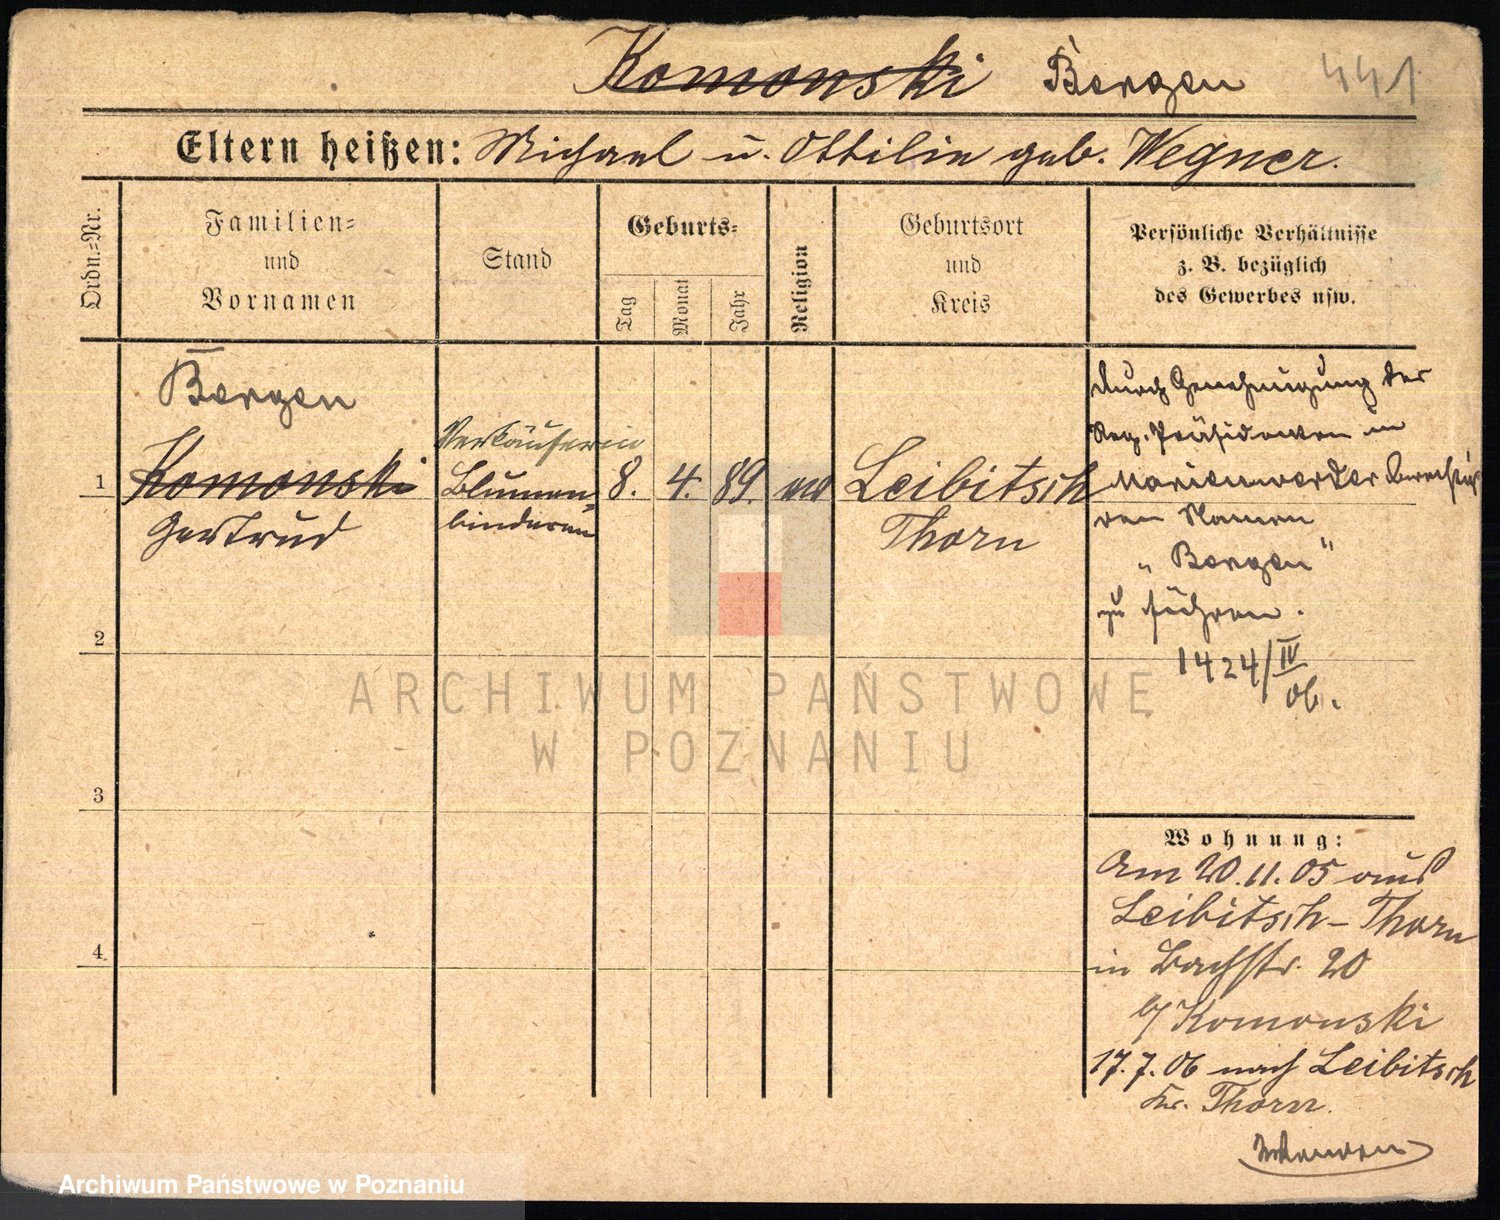 Komonski Bergen 441
Eltern heißen: Michael u. Ottilie geb. Wegner.
Ordn.=Nr.
Familien=
und
Vornamen
Stand
Geburts=
Tag
Monat
Jahr
Religion
Geburtsort
und
Kreis
Persönliche Verhältnisse
z. B. bezüglich
des Gewerbes usw.
1
Bergen
Komonski
Gertrud
Verkäuferin
Blumen=
binderin
8. 4. 89.
Leibitsch
Thorn
durch Genehmigung des
Reg. Präsidenten in
Marienwerder berechtigt
den Namen
„Bergen"
zu führen.
1424/IV
06.
2
3
4
Wohnung:
Am 20.11.05 aus
Leibitsch-Thorn
in Bachstr. 20
b/ Komonski
17.7.06 nach Leibitsch
Kr. Thorn.
ARCHIWUM PAŃSTWOWE
W POZNANIU
Archiwum Państwowe w Poznaniu